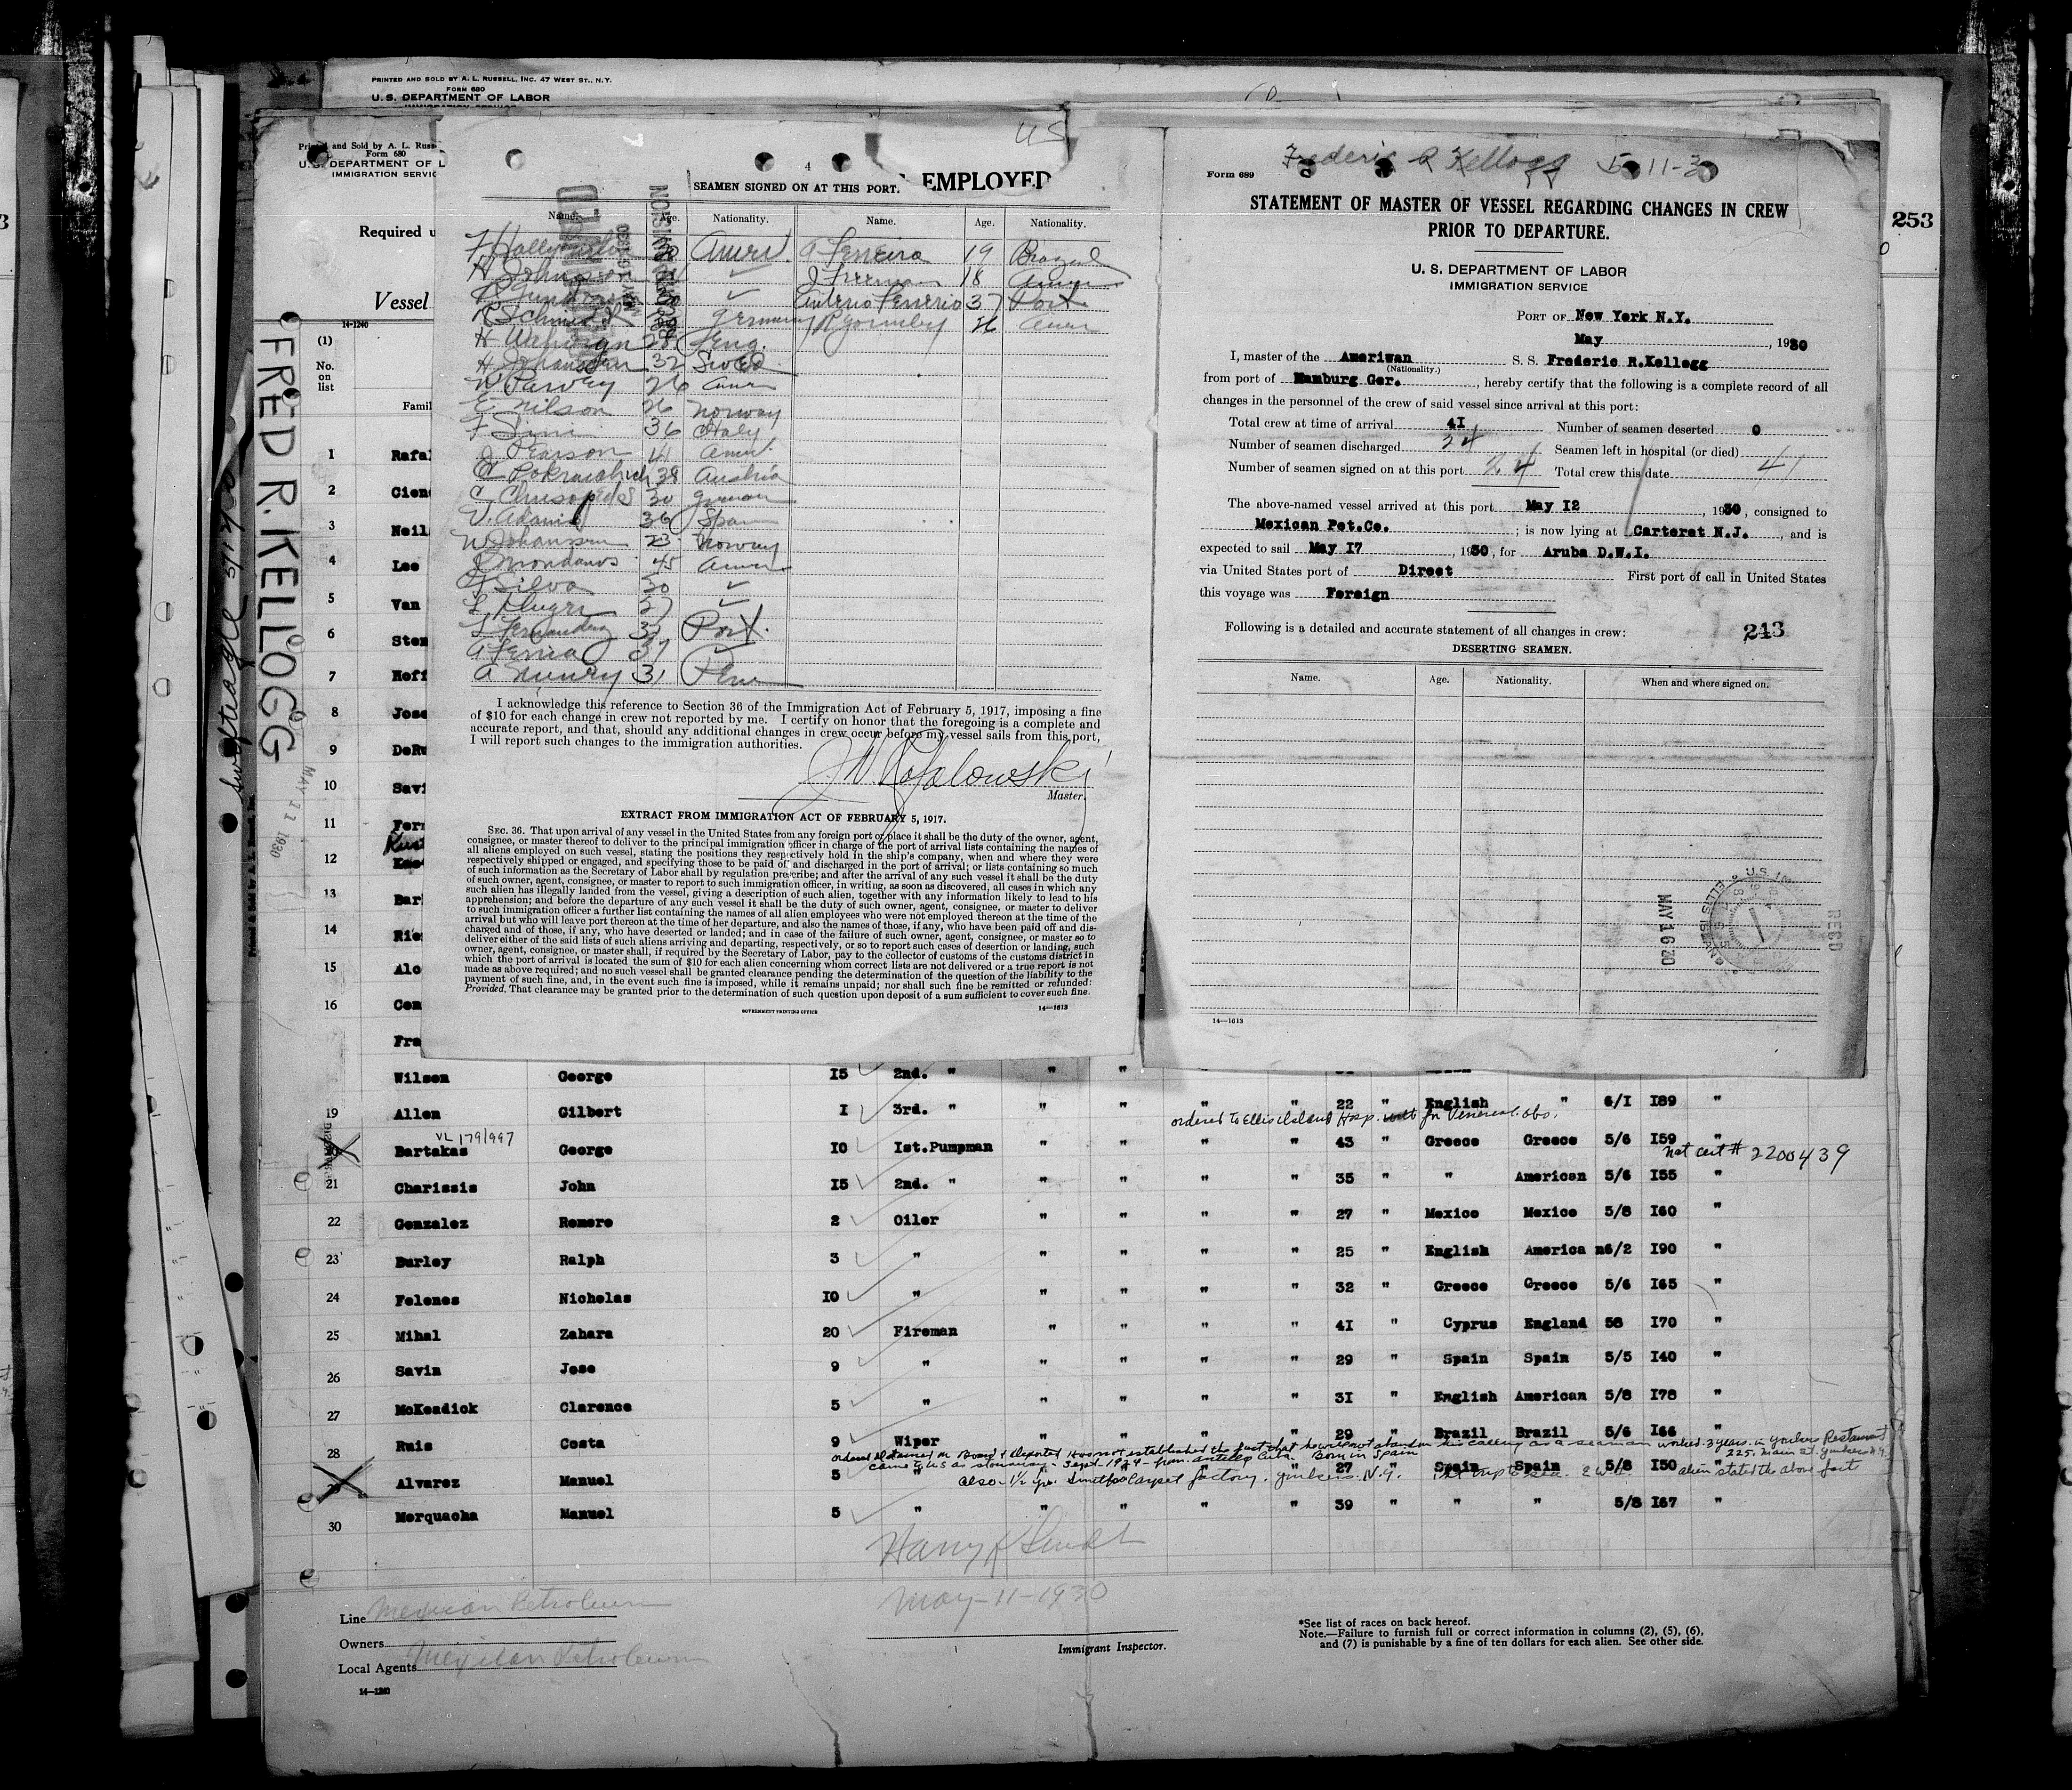 PRINTED AND SOLD BY A. L. RUSSELL, INC. 47 WEST ST., N.Y.
FORM 680
U. S. DEPARTMENT OF LABOR
Printed and Sold by A. L. Russ
Form 680
U. S. DEPARTMENT OF L
IMMIGRATION SERVIC
Required u
Vessel
14-1240
(1)
No.
on
list
Famil
FRED R. KELLOGG
MAY 11 1930
US
4
EMPLOYED
SEAMEN SIGNED ON AT THIS PORT.
Name. Age. Nationality. Name. Age. Nationality.
Amer. A Ferreira 19 Brazil
H Johnson ✓ J Freeman 18 Amer
✓ 37 Port
R Schmidt Germany 26 Amer
H Eng.
H Johansson 32 Swed
26 Amer
E. Nilson 26 Norway
F 36 Italy
J Pearson 41 Amer.
38 Austria
C. 30 German
V. Adams 36 Spain
W Johanssen 23 Norway
45 Amer
Silva 30 ✓
L 27 ✓
L Fernandez 33 Port.
A 37 ✓
A 31 Peru
I acknowledge this reference to Section 36 of the Immigration Act of February 5, 1917, imposing a fine
of $10 for each change in crew not reported by me. I certify on honor that the foregoing is a complete and
accurate report, and that, should any additional changes in crew occur before my vessel sails from this port,
I will report such changes to the immigration authorities.
J W. Rafalowski
Master.
EXTRACT FROM IMMIGRATION ACT OF FEBRUARY 5, 1917.
SEC. 36. That upon arrival of any vessel in the United States from any foreign port or place it shall be the duty of the owner, agent,
consignee, or master thereof to deliver to the principal immigration officer in charge of the port of arrival lists containing the names of
all aliens employed on such vessel, stating the positions they respectively hold in the ship's company, when and where they were
respectively shipped or engaged, and specifying those to be paid off and discharged in the port of arrival; or lists containing so much
of such information as the Secretary of Labor shall by regulation prescribe; and after the arrival of any such vessel it shall be the duty
of such owner, agent, consignee, or master to report to such immigration officer, in writing, as soon as discovered, all cases in which any
such alien has illegally landed from the vessel, giving a description of such alien, together with any information likely to lead to his
apprehension; and before the departure of any such vessel it shall be the duty of such owner, agent, consignee, or master to deliver
to such immigration officer a further list containing the names of all alien employees who were not employed thereon at the time of the
arrival but who will leave port thereon at the time of her departure, and also the names of those, if any, who have been paid off and dis-
charged and of those, if any, who have deserted or landed; and in case of the failure of such owner, agent, consignee, or master so to
deliver either of the said lists of such aliens arriving and departing, respectively, or so to report such cases of desertion or landing, such
owner, agent, consignee, or master shall, if required by the Secretary of Labor, pay to the collector of customs of the customs district in
which the port of arrival is located the sum of $10 for each alien concerning whom correct lists are not delivered or a true report is not
made as above required; and no such vessel shall be granted clearance pending the determination of the question of the liability to the
payment of such fine, and, in the event such fine is imposed, while it remains unpaid; nor shall such fine be remitted or refunded:
Provided, That clearance may be granted prior to the determination of such question upon deposit of a sum sufficient to cover such fine.
GOVERNMENT PRINTING OFFICE
14—1613
Frederic R Kellogg 5-11-3
Form 689
STATEMENT OF MASTER OF VESSEL REGARDING CHANGES IN CREW
PRIOR TO DEPARTURE.
U. S. DEPARTMENT OF LABOR
IMMIGRATION SERVICE
PORT OF New York N.Y.
May, 1930
I, master of the Ameriwan S. S. Frederic R.Kellegg
(Nationality.)
from port of Hamburg Ger., hereby certify that the following is a complete record of all
changes in the personnel of the crew of said vessel since arrival at this port:
Total crew at time of arrival 4I Number of seamen deserted 0
Number of seamen discharged 24 Seamen left in hospital (or died)
Number of seamen signed on at this port 24 Total crew this date 41
The above-named vessel arrived at this port May I2, 1930, consigned to
Mexican Pet.Co.; is now lying at Carteret N.J., and is
expected to sail May I7, 1930, for Aruba D.W.I.
via United States port of Direct First port of call in United States
this voyage was Foreign
Following is a detailed and accurate statement of all changes in crew: 243
DESERTING SEAMEN.
Name. Age. Nationality. When and where signed on.
MAY 16 30
RECD
14—1613
253
1 Rafal
2 Cien
3 Neil
4 Lee
5 Van
6 Sten
7 Hoff
8 Jose
9 DeRu
10 Savi
11 Fer
12
13 Bar
14 Rie
15 Alo
16 Com
Fra
Wilson George I5 2nd. " " "
19 Allen Gilbert I 3rd. " " " " " 22 " English " 6/I I89 "
ordered to Ellis Island Hosp. for Venereal obs.
VL 179/997
Bartakas George IO Ist.Pumpman " " " " 43 " Greece Greece 5/6 I59 "
Nat cert # 2200439
21 Charissis John I5 2nd. " " " " " 35 " " American 5/6 I55 "
22 Gonzalez Romero 2 Oiler " " " " 27 " Mexico Mexico 5/8 I60 "
23 Burley Ralph 3 " " " " " 25 " English America n6/2 I90 "
24 Felenos Nicholas IO " " " " " 32 " Greece Greece 5/6 I65 "
25 Mihal Zahara 20 Fireman " " " " 4I " Cyprus England 58 I70 "
26 Savin Jose 9 " " " " " 29 " Spain Spain 5/5 I40 "
27 McKeadick Clarence 5 " " " " " 3I " English American 5/8 I78 "
28 Ruis Costa 9 Wiper " " " " 29 " Brazil Brazil 5/6 I66 "
ordered detained on Board & deported Has not established the fact that he will not abandon his calling as a seaman worked 3 years in Yonkers Restaurant
came to US as stowaway - Sept. 1924 - from Cuba. Born in Spain 225 Main st. Yonkers N.Y.
29 Alvarez Manuel 5 " " " " " 27 " Spain Spain 5/8 I50 "
also 1½ yr. Smiths Carpet factory. Yonkers. N.Y. alien stated the above fact
30 Merquacha Manuel 5 " " " " " 39 " " " 5/8 I67 "
May-11-1930
Immigrant Inspector.
Line Mexican Petroleum
Owners
Local Agents Mexican Petroleum
14—1240
*See list of races on back hereof.
Note.—Failure to furnish full or correct information in columns (2), (5), (6),
and (7) is punishable by a fine of ten dollars for each alien. See other side.